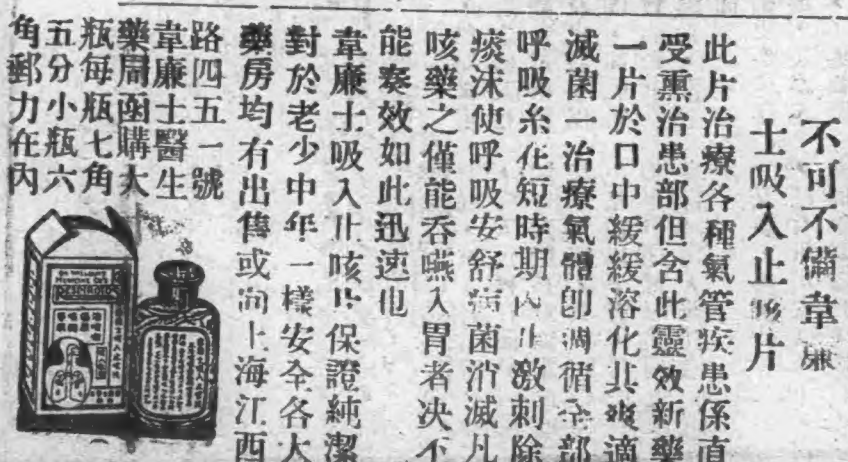 不可不備韋廉
士吸入止咳片
此片治療各種氣管疾患係直
受熏治患部但含此靈效新藥
一片於口中緩緩溶化其爽適
滅菌一治療氣體卽調循全部
呼吸系在短時期內止激刺除
痰沫使呼吸安舒病菌消滅凡
咳藥之僅能吞嚥入胃者决不
能奏效如此迅速也
韋廉士吸入止咳片保證純潔
對於老少中年一樣安全各大
藥房均有出售或向上海江西
路四五一號
韋廉士醫生
藥局函購大
瓶每瓶七角
五分小瓶六
角郵力在內